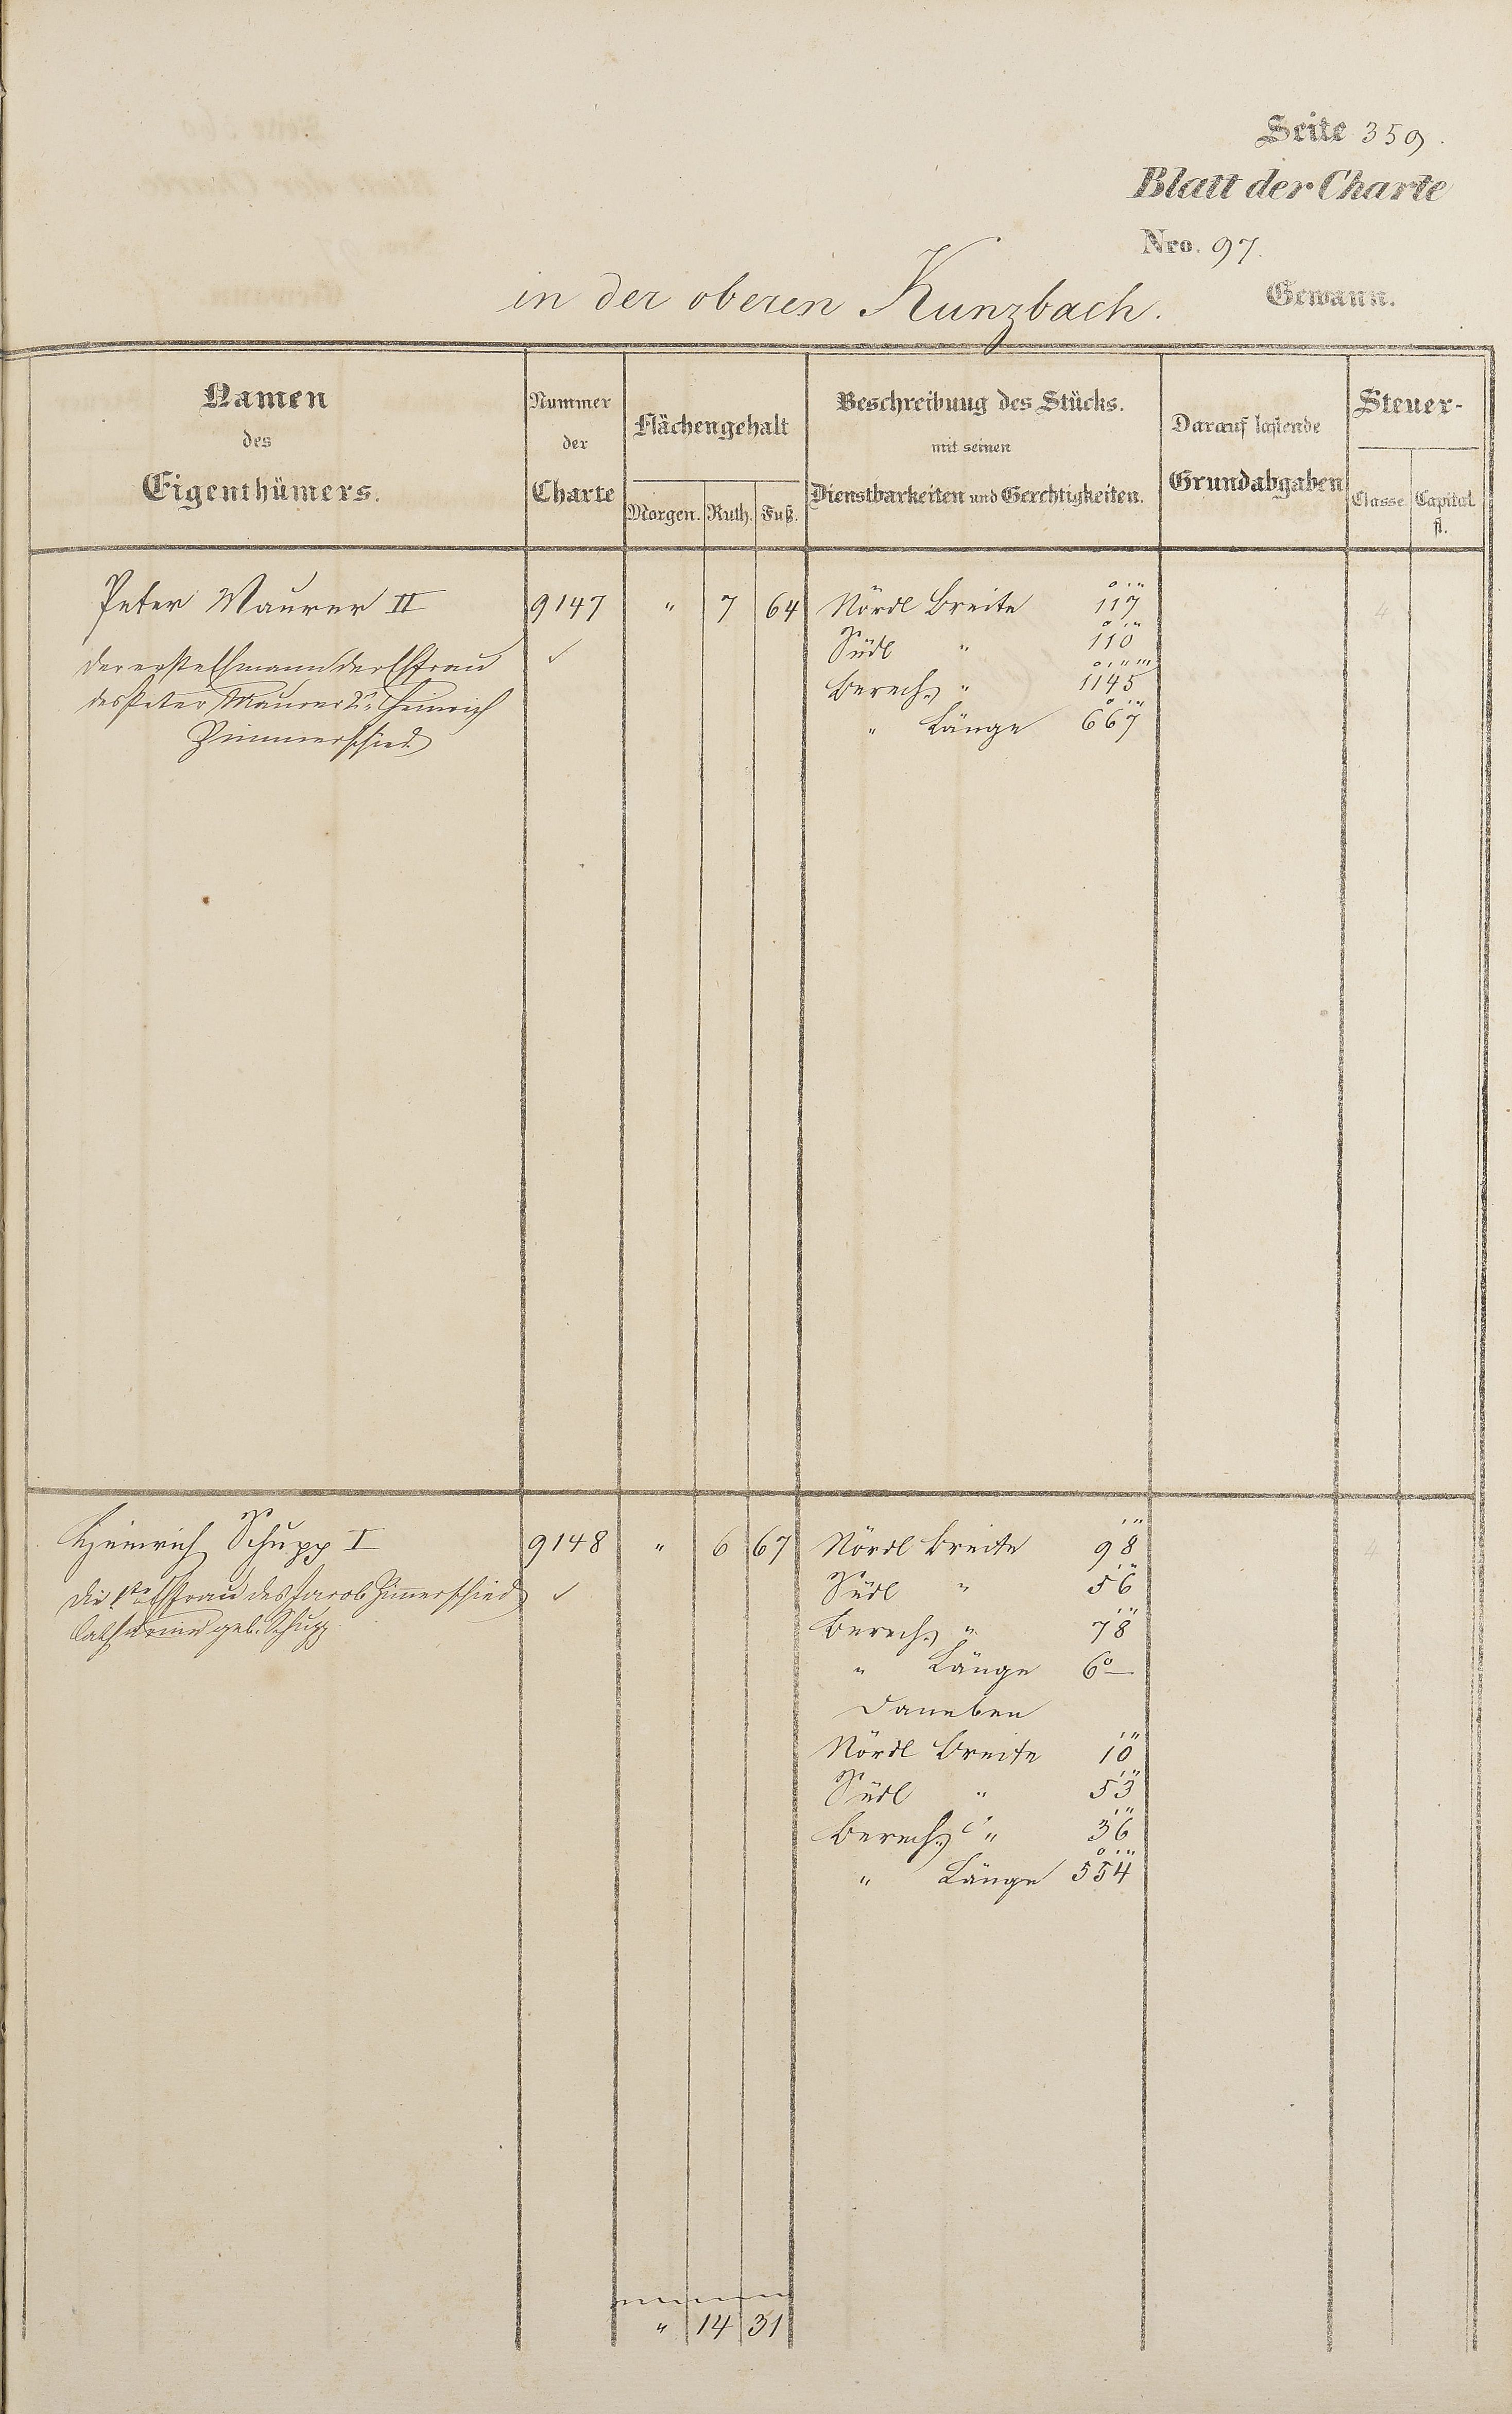 Seite 359.
Blatt der Charte
Nro. 97.
in der oberen Kunzbach. Gewann.
Namen des Eigenthümers.
Nummer der Charte
Flächengehalt
Morgen. Ruth. Fuß.
Beschreibung des Stücks.
mit seinen
Dienstbarkeiten und Gerechtigkeiten.
Darauf lastende
Grundabgaben
Steuer-
Classe Capital
fl.
Peter Maurer II 9147 " 7 64 Nördl Breite 117 4
der erste Ehmann der Ehfrau ✓ Südl " 110
des Peter Maurer 2r Heinrich Berech. " 1145
Zimmerschied " Länge 667
Heinrich Schupp I 9148 " 6 67 Nördl Breite 98 4
die 1te Ehfrau des Jacob Zimerschied ✓ Südl " 56
Catharine geb. Schupp Berech. " 78
" Länge 6° —
Daneben
Nördl Breite 10
Südl " 53
Berech. " 36
" Länge 554
" 14 31